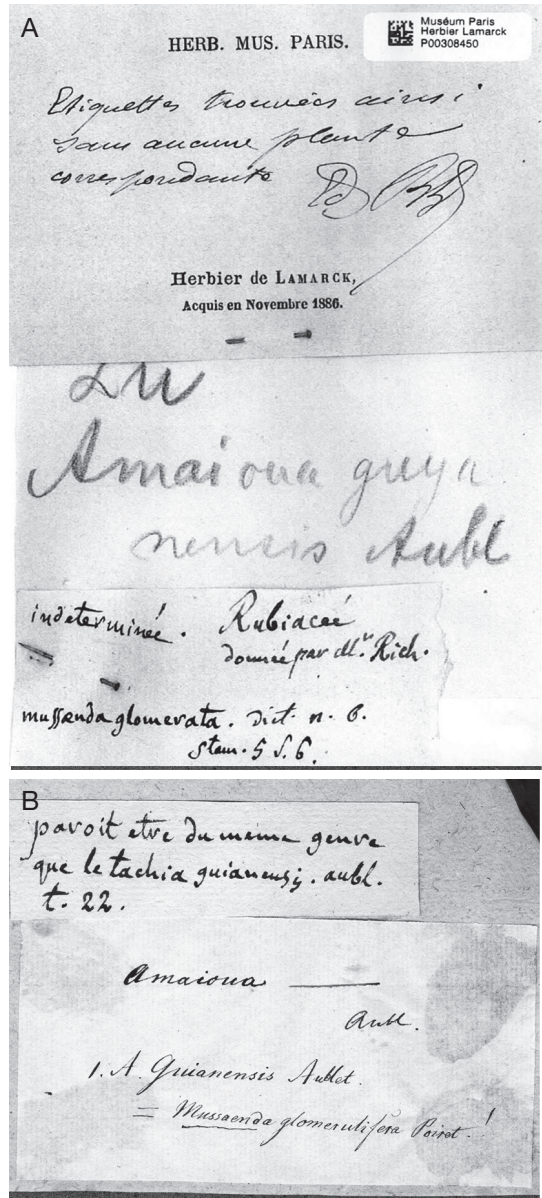 A
HERB. MUS. PARIS.
Muséum Paris
Herbier Lamarck
P00308450
Etiquettes trouvées ainsi
sans aucune plante
correspondante
Herbier de LAMARCK,
Acquis en Novembre 1886.
Amaioua guya
nensis Aubl
indeterminée. Rubiaceé
donnée par Mr. Rich.
mussænda glomerata. dict. n. 6.
stam. 5 s. 6.
B
paroit etre du meme genre
que le tachia guianensis. aubl.
t. 22.
Amaioua —
Aubl.
1. A. Guianensis Aublet.
= Mussaenda glomerulifera Poiret!